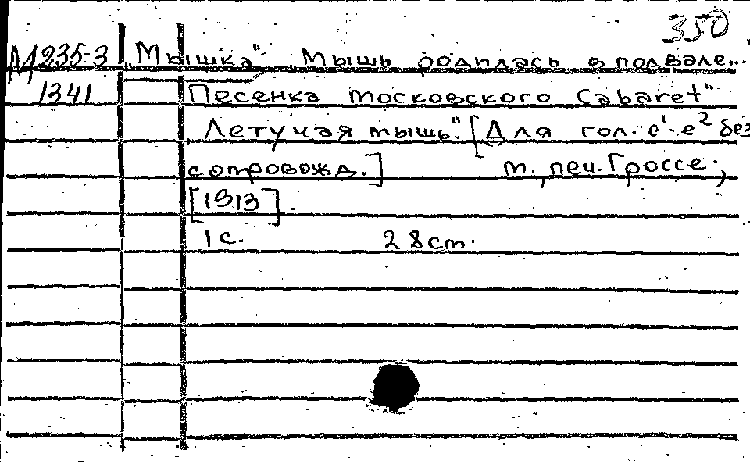 350
М 235-3 „Мышка" Мышь родилась в подвале..
1341 Песенка Московского Cabaret "
Летучая мышь". [Для гол. e¹-e² без
сопровожд.] М., печ. Гроссе,
[1913].
1 с. 28 см.